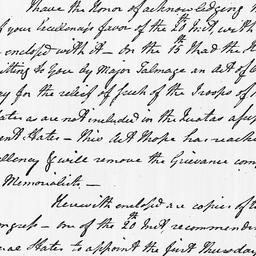 I have the Honor of acknowledging
of your Excellency's favor of the 20th Inst, with
enclos'd with it — On the 15th I had the H
itting to you by Major Talmage an Act of
ry for the relief of such of the Troops of
tates as are not included in the Quotas
ent States — This Act I hope has reache
ellency & will remove the Grievance com
Memorialists, —
Herewith enclosed are copies of
ongress — one of the 20th Inst recommendin
ral States to appoint the first Thursday